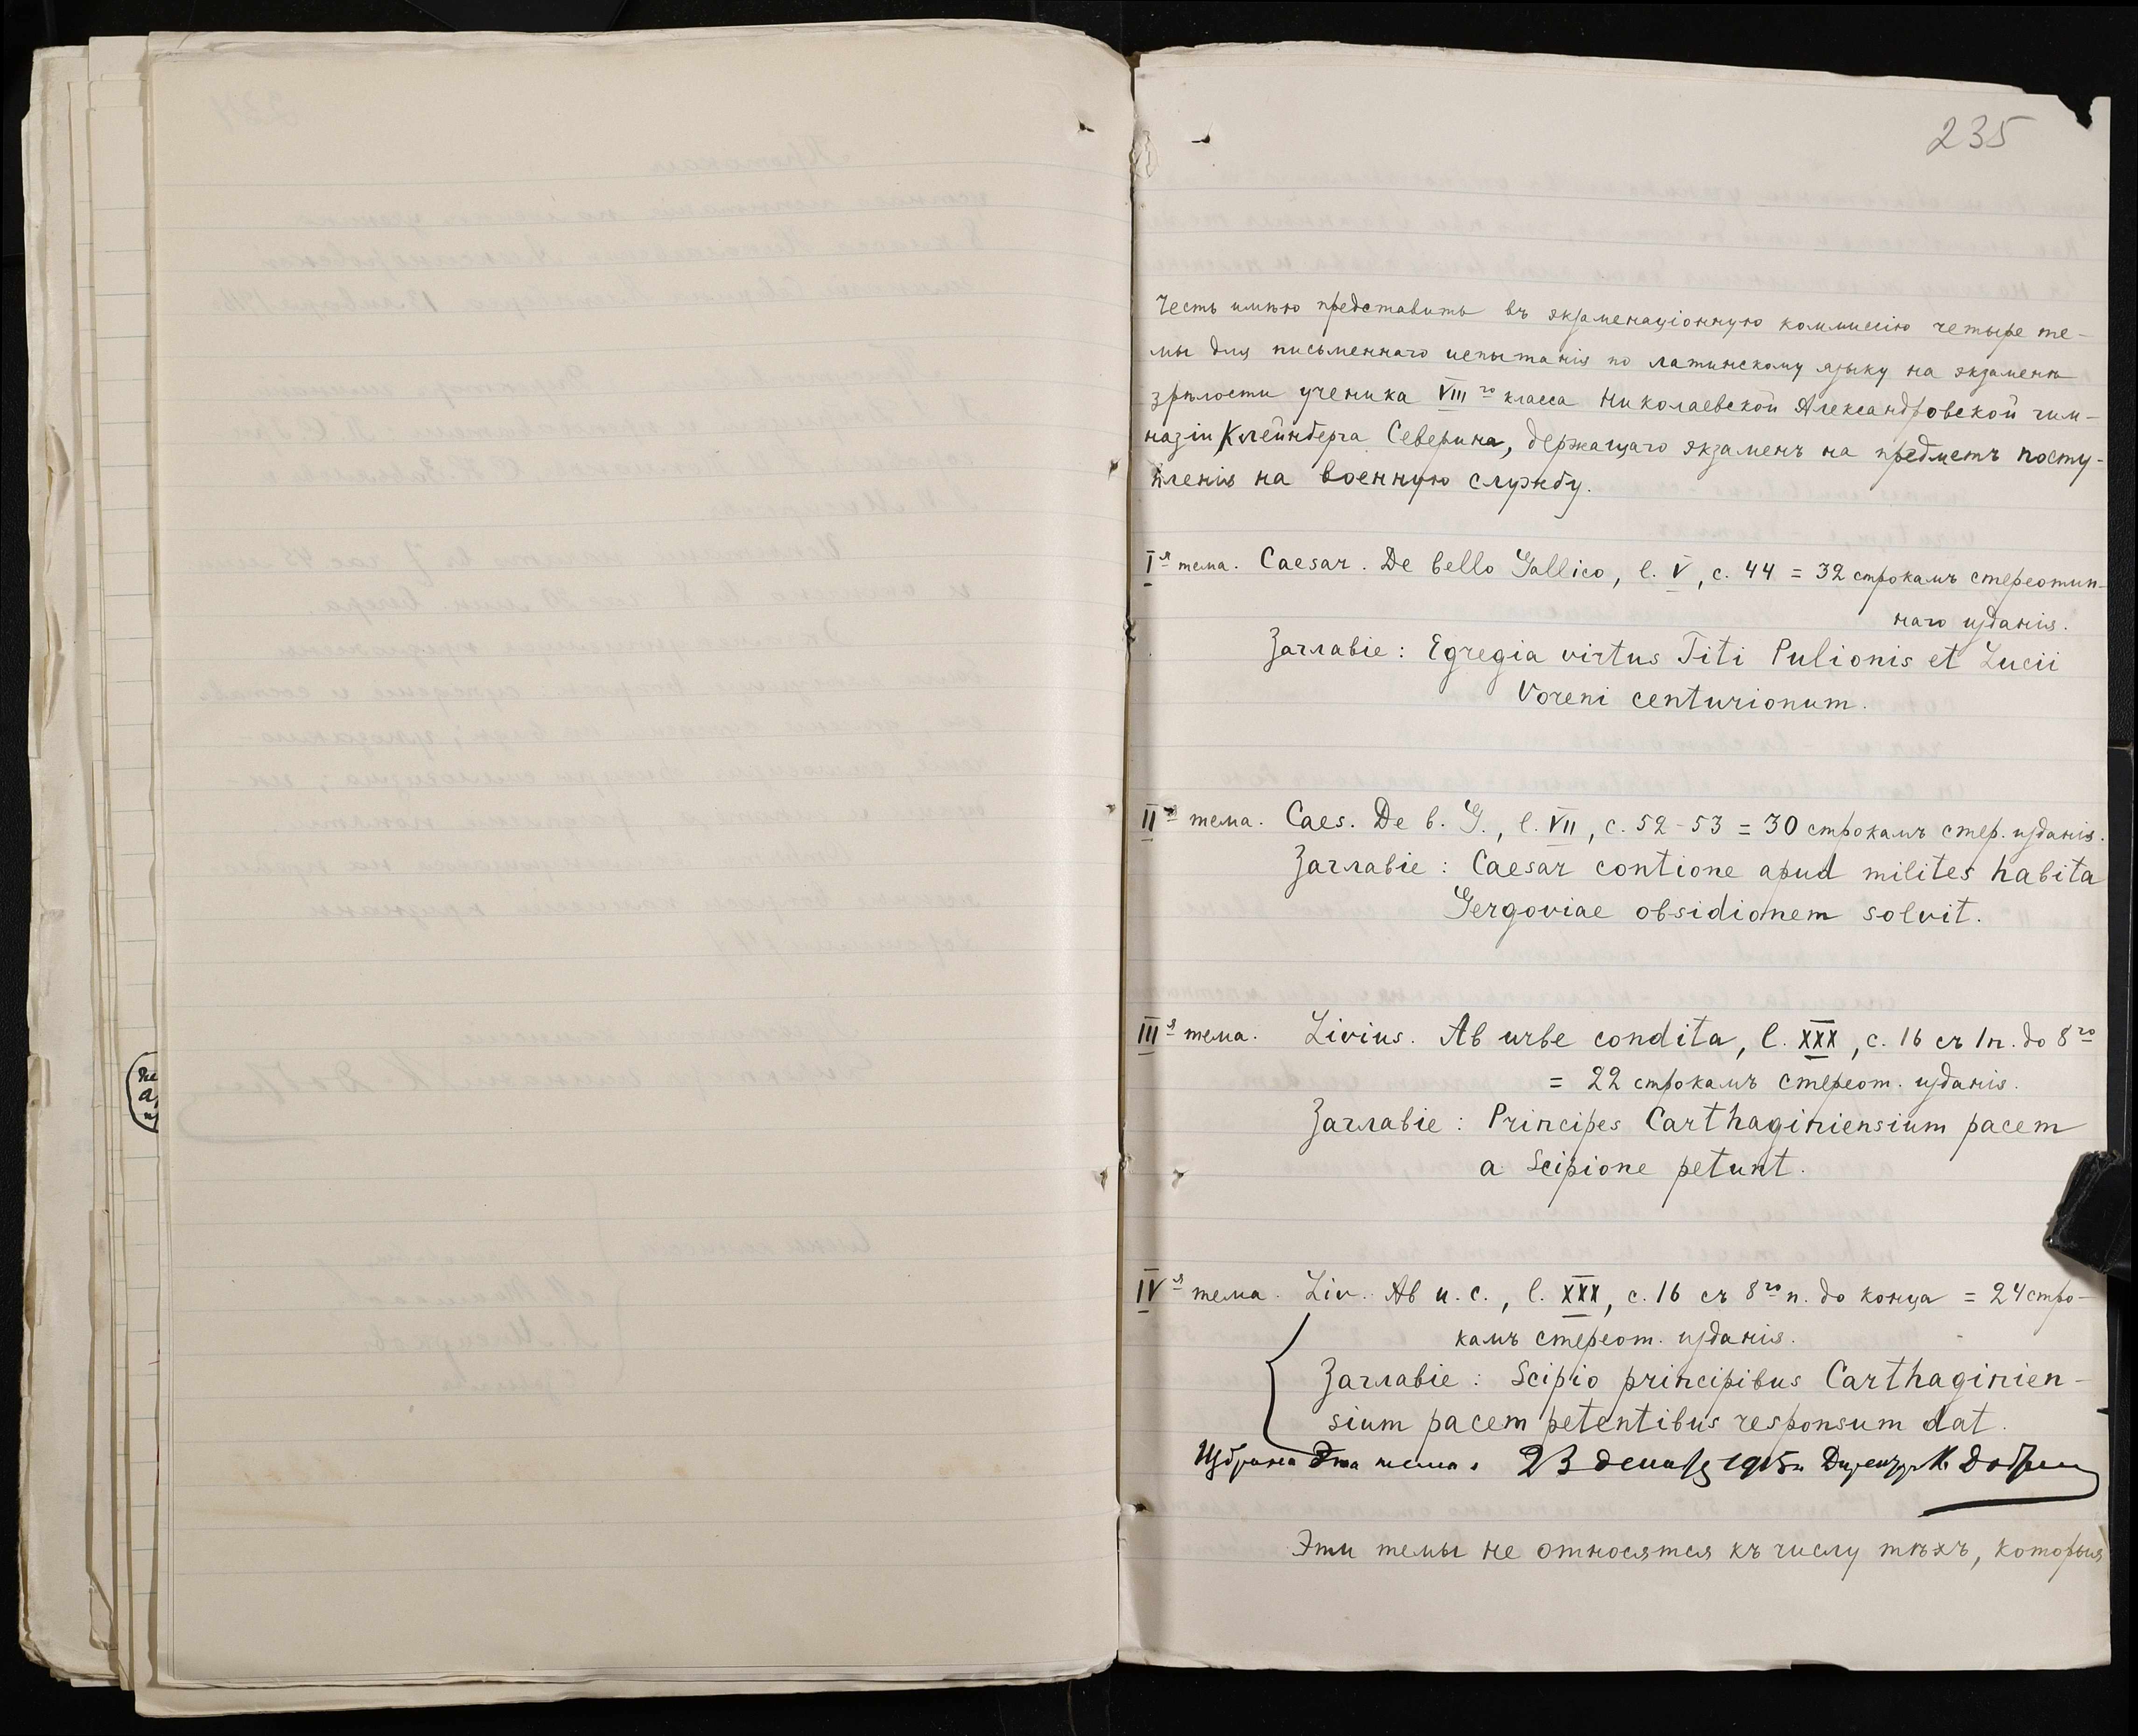 235
Честь имѣю представить въ экзаменаціонную коммиссію четыре те-
мы для письменнаго испытанія по латинскому языку на экзаменѣ
зрѣлости ученика VIII го класса Николаевской Александровской гим-
назіи Клейнберга Северина, держащаго экзаменъ на предметъ посту-
пленія на военную службу.
I я тема. Caesar. De bello Gallico, l. V, c. 44 = 32 строкамъ стереотип-
наго изданія.
Заглавіе: Egregia virtus Titi Pulionis et Lucii
Voreni centurionum.
II я тема. Caes. De b. G., l. VII, c. 52-53 = 30 строкамъ стер. изданія.
Заглавіе: Caesar contione apud milites habita
Gergoviae obsidionem solvit.
III я тема. Livius. Ab urbe condita, l. XXX, c. 16 съ 1 п. до 8 го
= 22 строкамъ стереот. изданія.
Заглавіе: Principes Carthaginiensium pacem
a Scipione petunt.
IV я тема. Liv. Ab u. c., l. XXX, c. 16 съ 8 го п. до конца = 24 стро-
камъ стереот. изданія.
Заглавіе: Scipio principibus Carthaginien-
sium pacem petentibus responsum dat.
Избрана эта тема. 23 декабря 1915 г. Директоръ К.
Эти темы не относятся къ числу тѣхъ, которыя